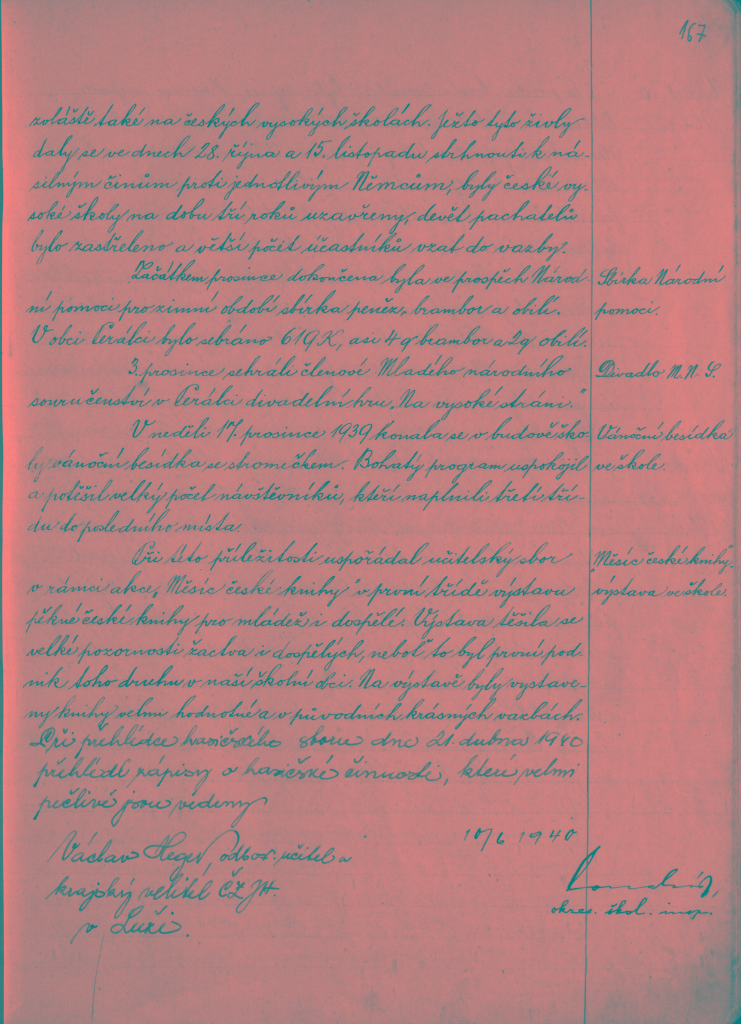 167
zvláště také na českých vysokých školách. Ježto tyto živly
daly se ve dnech 28. října a 15. listopadu strhnouti k ná-
silným činům proti jednotlivým Němcům, byly české vy-
soké školy na dobu tří roků uzavřeny, devět pachatelů
bylo zastřeleno a větší počet účastníků vzat do vazby.
Začátkem prosince dokončena byla ve prospěch Národ-
ní pomoci pro zimní období sbírka peněz, brambor a obilí.
V obci Perálci bylo sebráno 619 K, asi 4 q brambor a 2 q obilí.
Sbírka Národní
pomoci.
3. prosince sehráli členové Mladého národního
souručenství v Perálci divadelní hru „Na vysoké stráni."
Divadlo M. N. S.
V neděli 17. prosince 1939 konala se v budově ško-
ly vánoční besídka se stromečkem. Bohatý program uspokojil
a potěšil velký počet návštěvníků, kteří naplnili třetí tří-
du do posledního místa.
Vánoční besídka
ve škole.
Při této příležitosti uspořádal učitelský sbor
v rámci akce „Měsíc české knihy" v první třídě výstavu
pěkné české knihy pro mládež i dospělé. Výstava těšila se
velké pozornosti žactva i dospělých, neboť to byl první pod-
nik toho druhu v naší školní obci. Na výstavě byly vystave-
ny knihy velmi hodnotné a v původních krásných vazbách.
"Měsíc české knihy"-
výstava ve škole.
Při přehlídce hasičského sboru dne 21. dubna 1940
přehlédl zápisy o hasičské činnosti, které velmi
pečlivě jsou vedeny
10/6 1940
Václav Heger, odbor. učitel a
krajský velitel ČZJH.
v Luži.
okres. škol. insp.